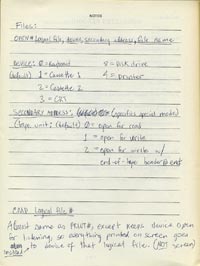 NOTES
Files:
OPEN # Logical File, device, secondary address, file name
DEVICE: 0 = Keyboard 8 = Disk drive
(default) 1 = Cassette 1 4 = printer
2 = Cassette 2
3 = CRT
SECONDARY ADDRESS: (specifies special modes)
(tape unit: (default) 0 = open for read
1 = open for write
2 = open for write w/
end-of-tape header @ end
CMD Logical File #
Almost same as PRINT#, except keeps device open
for listening, so everything printed on screen goes
to device of that logical file. (NOT screen)
instead